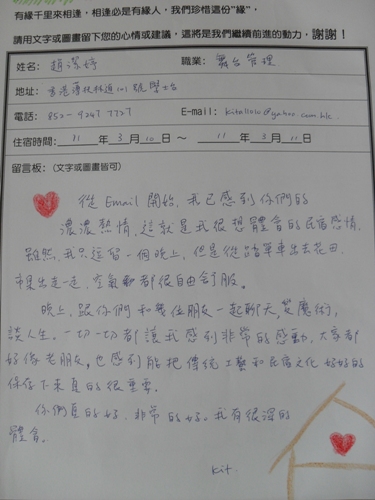 有緣千里來相逢，相逢必是有緣人，我們珍惜這份"緣"，
請用文字或圖畫留下您的心情或建議，這將是我們繼續前進的動力，謝謝！
姓名： 趙潔婷 職業： 舞台管理
地址： 香港薄扶林道101號
電話： 852-9247 7727 E-mail： @yahoo.com.hk
住宿時間： 11 年 3 月 10 日 ～ 11 年 3 月 11 日
留言板：(文字或圖畫皆可)
從 Email 開始，我已感到你們的
濃濃熱情，這就是我很想體會的民宿感情
雖然，我只逗留一個晚上，但是從踏單車出去花田，
市集出走一走，空氣 都很自由舒服。
晚上，跟你們和幾位朋友一起聊天，변魔術，
談人生。一切一切都讓我感到非常的感動，大家都
好像老朋友，也感到能把傳統工藝和民宿文化好好的
保存下來真的很重要。
你們真的好，非常的好。我有很深的
體會。
Kit.